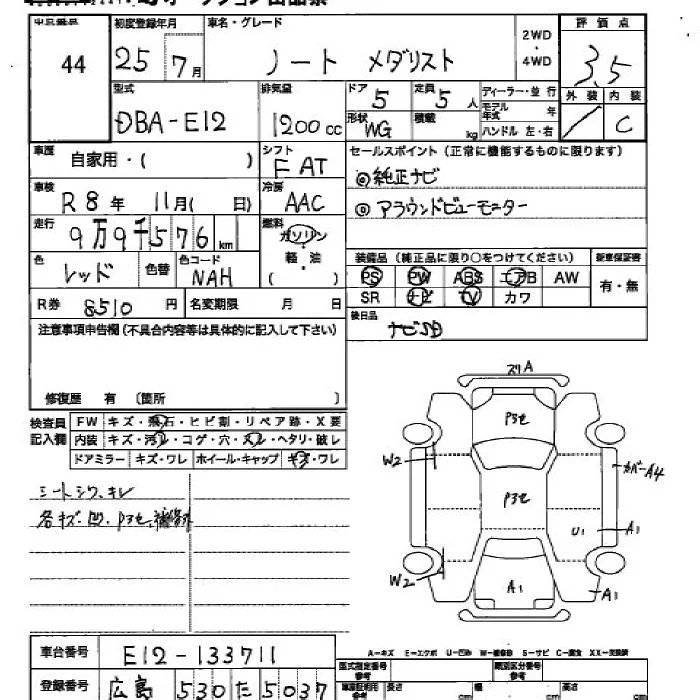 44
初度登録年月 車名・グレード 2WD ・ 4WD 評価点
25 7月 ノート メダリスト 3.5
型式 排気量 ドア 5 定員 5人 ディーラー・並行 外装 内装
DBA-E12 1200cc 形状 WG 積載 kg モデル年式 年 ハンドル 左・右 C
車歴 自家用・( ) シフト FAT セールスポイント(正常に機能するものに限ります)
車検 R8年 11月( 日) 冷房 AAC ◎純正ナビ
走行 9万9千576km 燃料 ガソリン・軽・油 ( ) ◎アラウンドビューモニター
色 レッド 色替 色コード NAH 装備品(純正品に限り○をつけてください) 新車保証書
PS PW ABS エアB AW 有・無
SR ナビ TV カワ
R券 8510円 名変期限 月 日 後日品 ナビSD
注意事項申告欄(不具合内容等は具体的に記入して下さい)
修復歴 有 〔箇所 〕
検査員記入欄 FW キズ・飛石・ヒビ割・リペア跡・X要
内装 キズ・汚レ・コゲ・穴・スレ・ヘタリ・破レ
ドアミラー キズ・ワレ ホイール・キャップ キズ・ワレ
シートシワ、キレ
各キズ・凹、P3セ、補修外
ズリA
P3セ
W2 カバーA4
P3セ
U1 A1
W2 A1 A1
A-キズ E-エクボ U-凹み W-補修跡 S-サビ C-腐食 XX-交換済
車台番号 E12-133711 型式指定番号 類別区分番号
登録番号 広島 530 た 5037 長さ cm 幅 cm 高さ cm